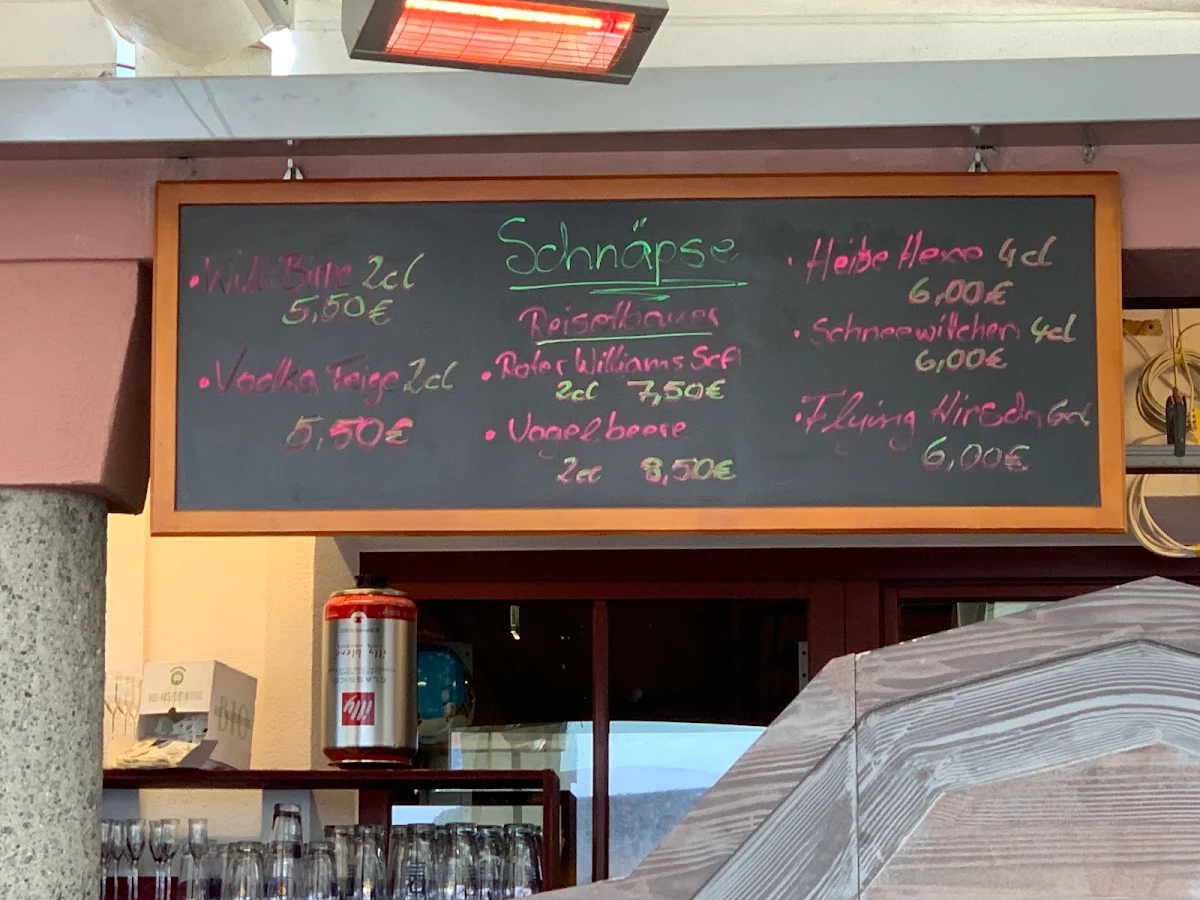 Schnäpse
• Willi-Birne 2cl
5,50€
• Vodka Feige 2cl
5,50€
Reisetbauer
• Roter Williams Saft
2cl 7,50€
• Vogelbeere
2cl 8,50€
• Heiße Hexe 4cl
6,00€
• Schneewittchen 4cl
6,00€
• Flying Hirsch 6cl
6,00€
illy
CLASSICO
illy blend